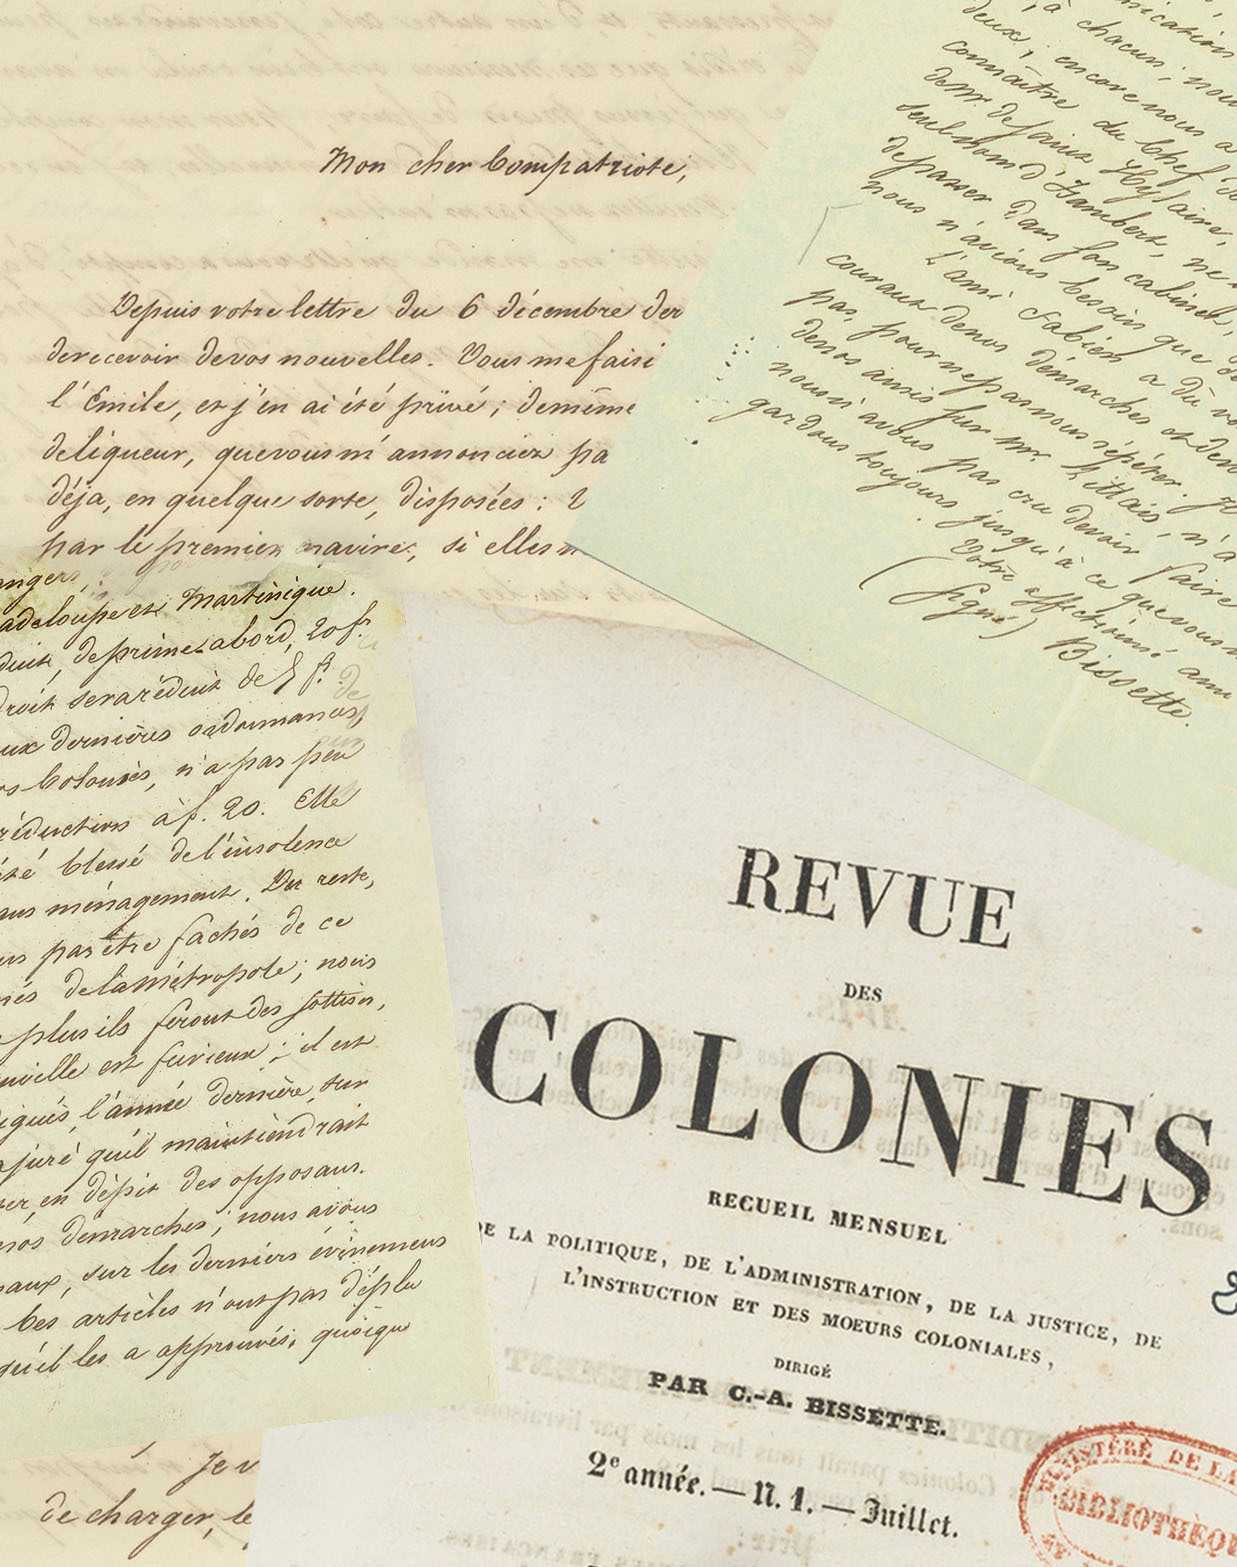 Mon cher Compatriote,
Depuis votre lettre du 6 décembre der
de recevoir de vos nouvelles. Vous me faisi
l'Emile, et j'en ai été privé ; de même
de liqueur, que vous m'annonciez pa
déja, en quelque sorte, disposées :
par le premier navire, si elles n
nication
à chacun, nou
deux ; encore nous a
connaître du Chef de
de Mr de Saint Hylaire,
seul nom d'Hambert, ne
de passer dans son cabinet,
nous n'avions besoin que de
L'ami Fabien a dû vo
courant de nos démarches et de
pas, pour ne pas nous répéter.
de nos amis sur Mr. Lillais, n'a
nous n'avons pas cru devoir faire
gardons toujours jusqu'à ce que vous n
Votre affectionné ami
(Signé) Bissette.
angers,
adeloupe et Martinique.
duit, de prime abord, 20 f.
droit sera réduit de 5 f.
ux dernières ordonnances,
rs Colonies, n'a pas peu
réduction à f. 20. Elle
été blessé de l'insolence
ans ménagement. Du reste,
us pas être fachés de ce
és de la métropole ; nous
plus ils feront des sottises,
uville est furieux ; il est
igués, l'année dernière, sur
a juré qu'il maintiendrait
er, en dépit des opposans.
nos demarches ; nous avons
naux, sur les derniers évènemens
Ces articles n'ont pas déplu
qu'il les a approuvés ; quoique
Je v
de charger, le
REVUE
DES
COLONIES
RECUEIL MENSUEL
DE LA POLITIQUE, DE L'ADMINISTRATION, DE LA JUSTICE, DE
L'INSTRUCTION ET DES MOEURS COLONIALES,
DIRIGÉ
PAR C.-A. BISSETTE.
2e année.—N. 1.—Juillet.
MINISTÈRE DE LA
BIBLIOTHÈQU